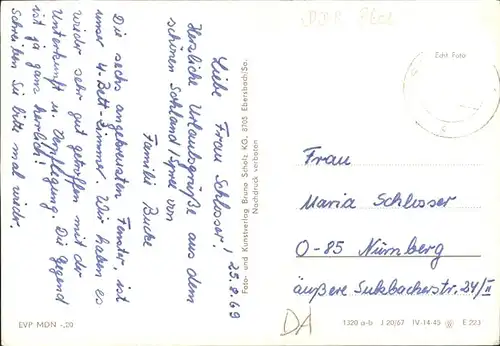 Liebe Frau Schlosser!
25.8.69
Herzliche Urlaubsgrüße aus dem
schönen Sohland/Spree von
Familie Bucke
Die sechs angekreuzten Fenster, ist
unser 4-Bett-Zimmer. Wir haben es
wieder sehr gut getroffen mit der
Unterkunft u. Verpflegung. Die Gegend
ist ja ganz herrlich!
Schreiben Sie bitte mal wieder.
EVP MDN -,20
Foto- und Kunstverlag Bruno Scholz KG, 8705 Ebersbach/Sa.
Nachdruck verboten
Echt Foto
Frau
Maria Schlosser
O-85 Nürnberg
äußere Sulzbacherstr. 24/II
DA
1320 a-b J 20/67 IV-14-45 E 223